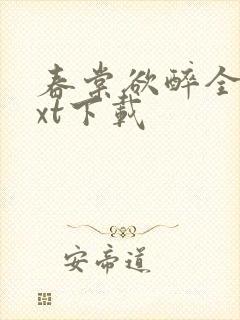 春棠欲醉全
xt下載
安帝道